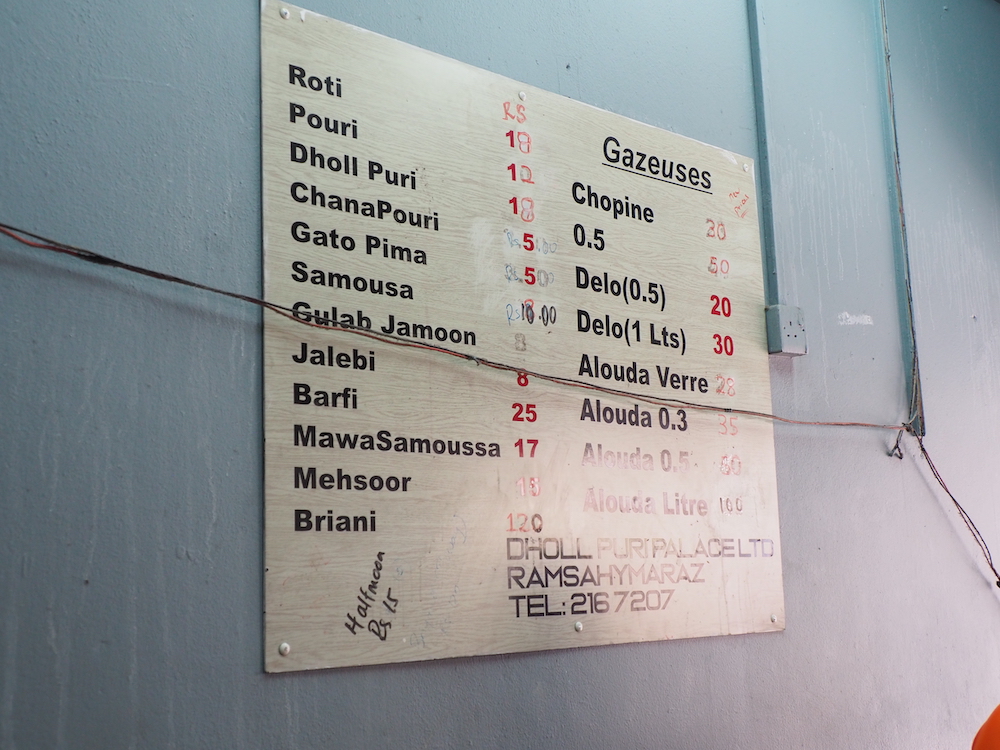 RS
Roti 18
Pouri 12
Dholl Puri 18
ChanaPouri Rs 5.00
Gato Pima Rs 5.00
Samousa Rs 10.00
Gulab Jamoon 8
Jalebi 8
Barfi 25
MawaSamoussa 17
Mehsoor
Briani 120
Halfmoon
Rs 15
Gazeuses
Chopine 30
0.5 50
Delo(0.5) 20
Delo(1 Lts) 30
Alouda Verre 28
Alouda 0.3 35
Alouda 0.5 60
Alouda Litre 100
DHOLL PURI PALACE LTD
RAMSAHYMARAZ
TEL: 216 7207